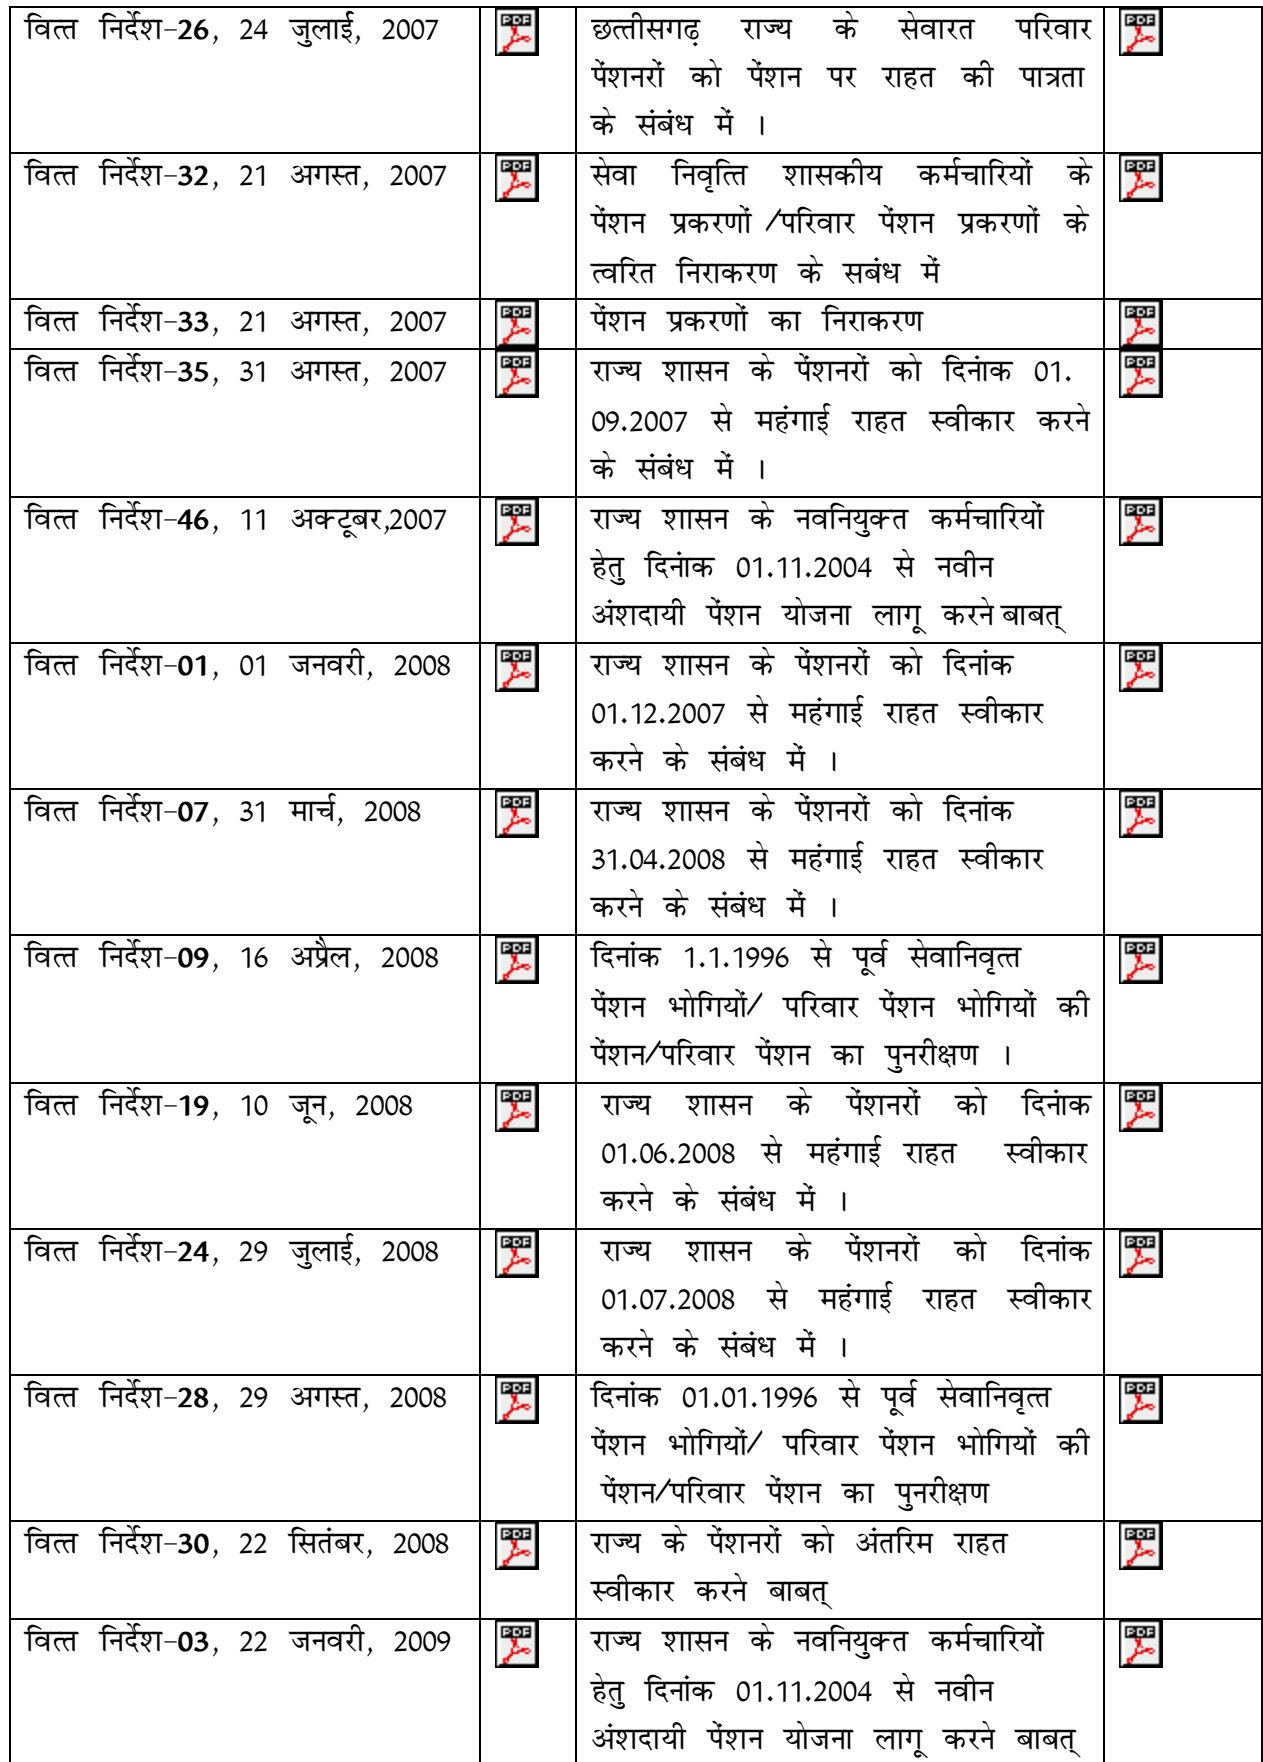 वित्त निर्देश-26, 24 जुलाई, 2007 PDF छत्तीसगढ़ राज्य के सेवारत परिवार PDF
पेंशनरों को पेंशन पर राहत की पात्रता
के संबंध में ।
वित्त निर्देश-32, 21 अगस्त, 2007 PDF सेवा निवृत्ति शासकीय कर्मचारियों के PDF
पेंशन प्रकरणों /परिवार पेंशन प्रकरणों के
त्वरित निराकरण के सबंध में
वित्त निर्देश-33, 21 अगस्त, 2007 PDF पेंशन प्रकरणों का निराकरण PDF
वित्त निर्देश-35, 31 अगस्त, 2007 PDF राज्य शासन के पेंशनरों को दिनांक 01. PDF
09.2007 से महंगाई राहत स्वीकार करने
के संबंध में ।
वित्त निर्देश-46, 11 अक्टूबर,2007 PDF राज्य शासन के नवनियुक्त कर्मचारियों PDF
हेतु दिनांक 01.11.2004 से नवीन
अंशदायी पेंशन योजना लागू करने बाबत्
वित्त निर्देश-01, 01 जनवरी, 2008 PDF राज्य शासन के पेंशनरों को दिनांक PDF
01.12.2007 से महंगाई राहत स्वीकार
करने के संबंध में ।
वित्त निर्देश-07, 31 मार्च, 2008 PDF राज्य शासन के पेंशनरों को दिनांक PDF
31.04.2008 से महंगाई राहत स्वीकार
करने के संबंध में ।
वित्त निर्देश-09, 16 अप्रैल, 2008 PDF दिनांक 1.1.1996 से पूर्व सेवानिवृत्त PDF
पेंशन भोगियों/ परिवार पेंशन भोगियों की
पेंशन/परिवार पेंशन का पुनरीक्षण ।
वित्त निर्देश-19, 10 जून, 2008 PDF राज्य शासन के पेंशनरों को दिनांक PDF
01.06.2008 से महंगाई राहत स्वीकार
करने के संबंध में ।
वित्त निर्देश-24, 29 जुलाई, 2008 PDF राज्य शासन के पेंशनरों को दिनांक PDF
01.07.2008 से महंगाई राहत स्वीकार
करने के संबंध में ।
वित्त निर्देश-28, 29 अगस्त, 2008 PDF दिनांक 01.01.1996 से पूर्व सेवानिवृत्त PDF
पेंशन भोगियों/ परिवार पेंशन भोगियों की
पेंशन/परिवार पेंशन का पुनरीक्षण
वित्त निर्देश-30, 22 सितंबर, 2008 PDF राज्य के पेंशनरों को अंतरिम राहत PDF
स्वीकार करने बाबत्
वित्त निर्देश-03, 22 जनवरी, 2009 PDF राज्य शासन के नवनियुक्त कर्मचारियों PDF
हेतु दिनांक 01.11.2004 से नवीन
अंशदायी पेंशन योजना लागू करने बाबत्